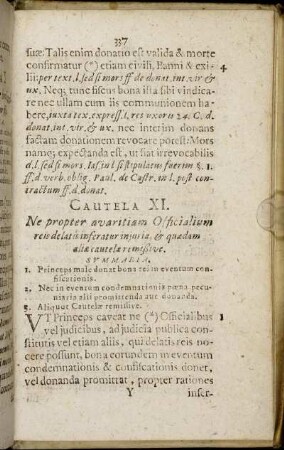 337
suæ: Talis enim donatio est valida & morte
confirmatur (*) etiam civili, Banni & exi- 4
lii: per text. l. sed si mors ff de donat. int. vir. &
ux. Neq; tunc fiscus bona ista sibi vindica-
re nec ullam cum iis communionem ha-
bere, juxta tex. express. l. res uxoris 24. C. d.
donat. int. vir, & ux. nec interim donans
factam donationem revocare potest: Mors
namq; expectanda est, ut fiat irrevocabilis
d. l. sed si mors. Jas. in l. si stipulatus fuerim §. 1.
ff. d verb. oblig. Paul. de Castr. in l. post con-
tractum ff. d. donat.
CAUTELA XI.
Ne propter avaritiam Officialium
reis delatis inferatur injuria, & quædam
aliæ cautelæ remissivè.
SUMMARIA.
1. Princeps male donat bona rei in eventum con-
fiscationis.
2. Nec in eventum condemnationis pœna pecu-
niaria alii promittenda aut donanda.
3. Aliquot Cautelæ remissivè.
UT Princeps caveat ne (*) Officialibus 1
vel judicibus, ad judicia publica con-
stitutis vel etiam aliis, qui delatis reis no-
cere possunt, bona eorundem in eventum
condemnationis & confiscationis donet,
vel donanda promittat, propter rationes
Y infer-